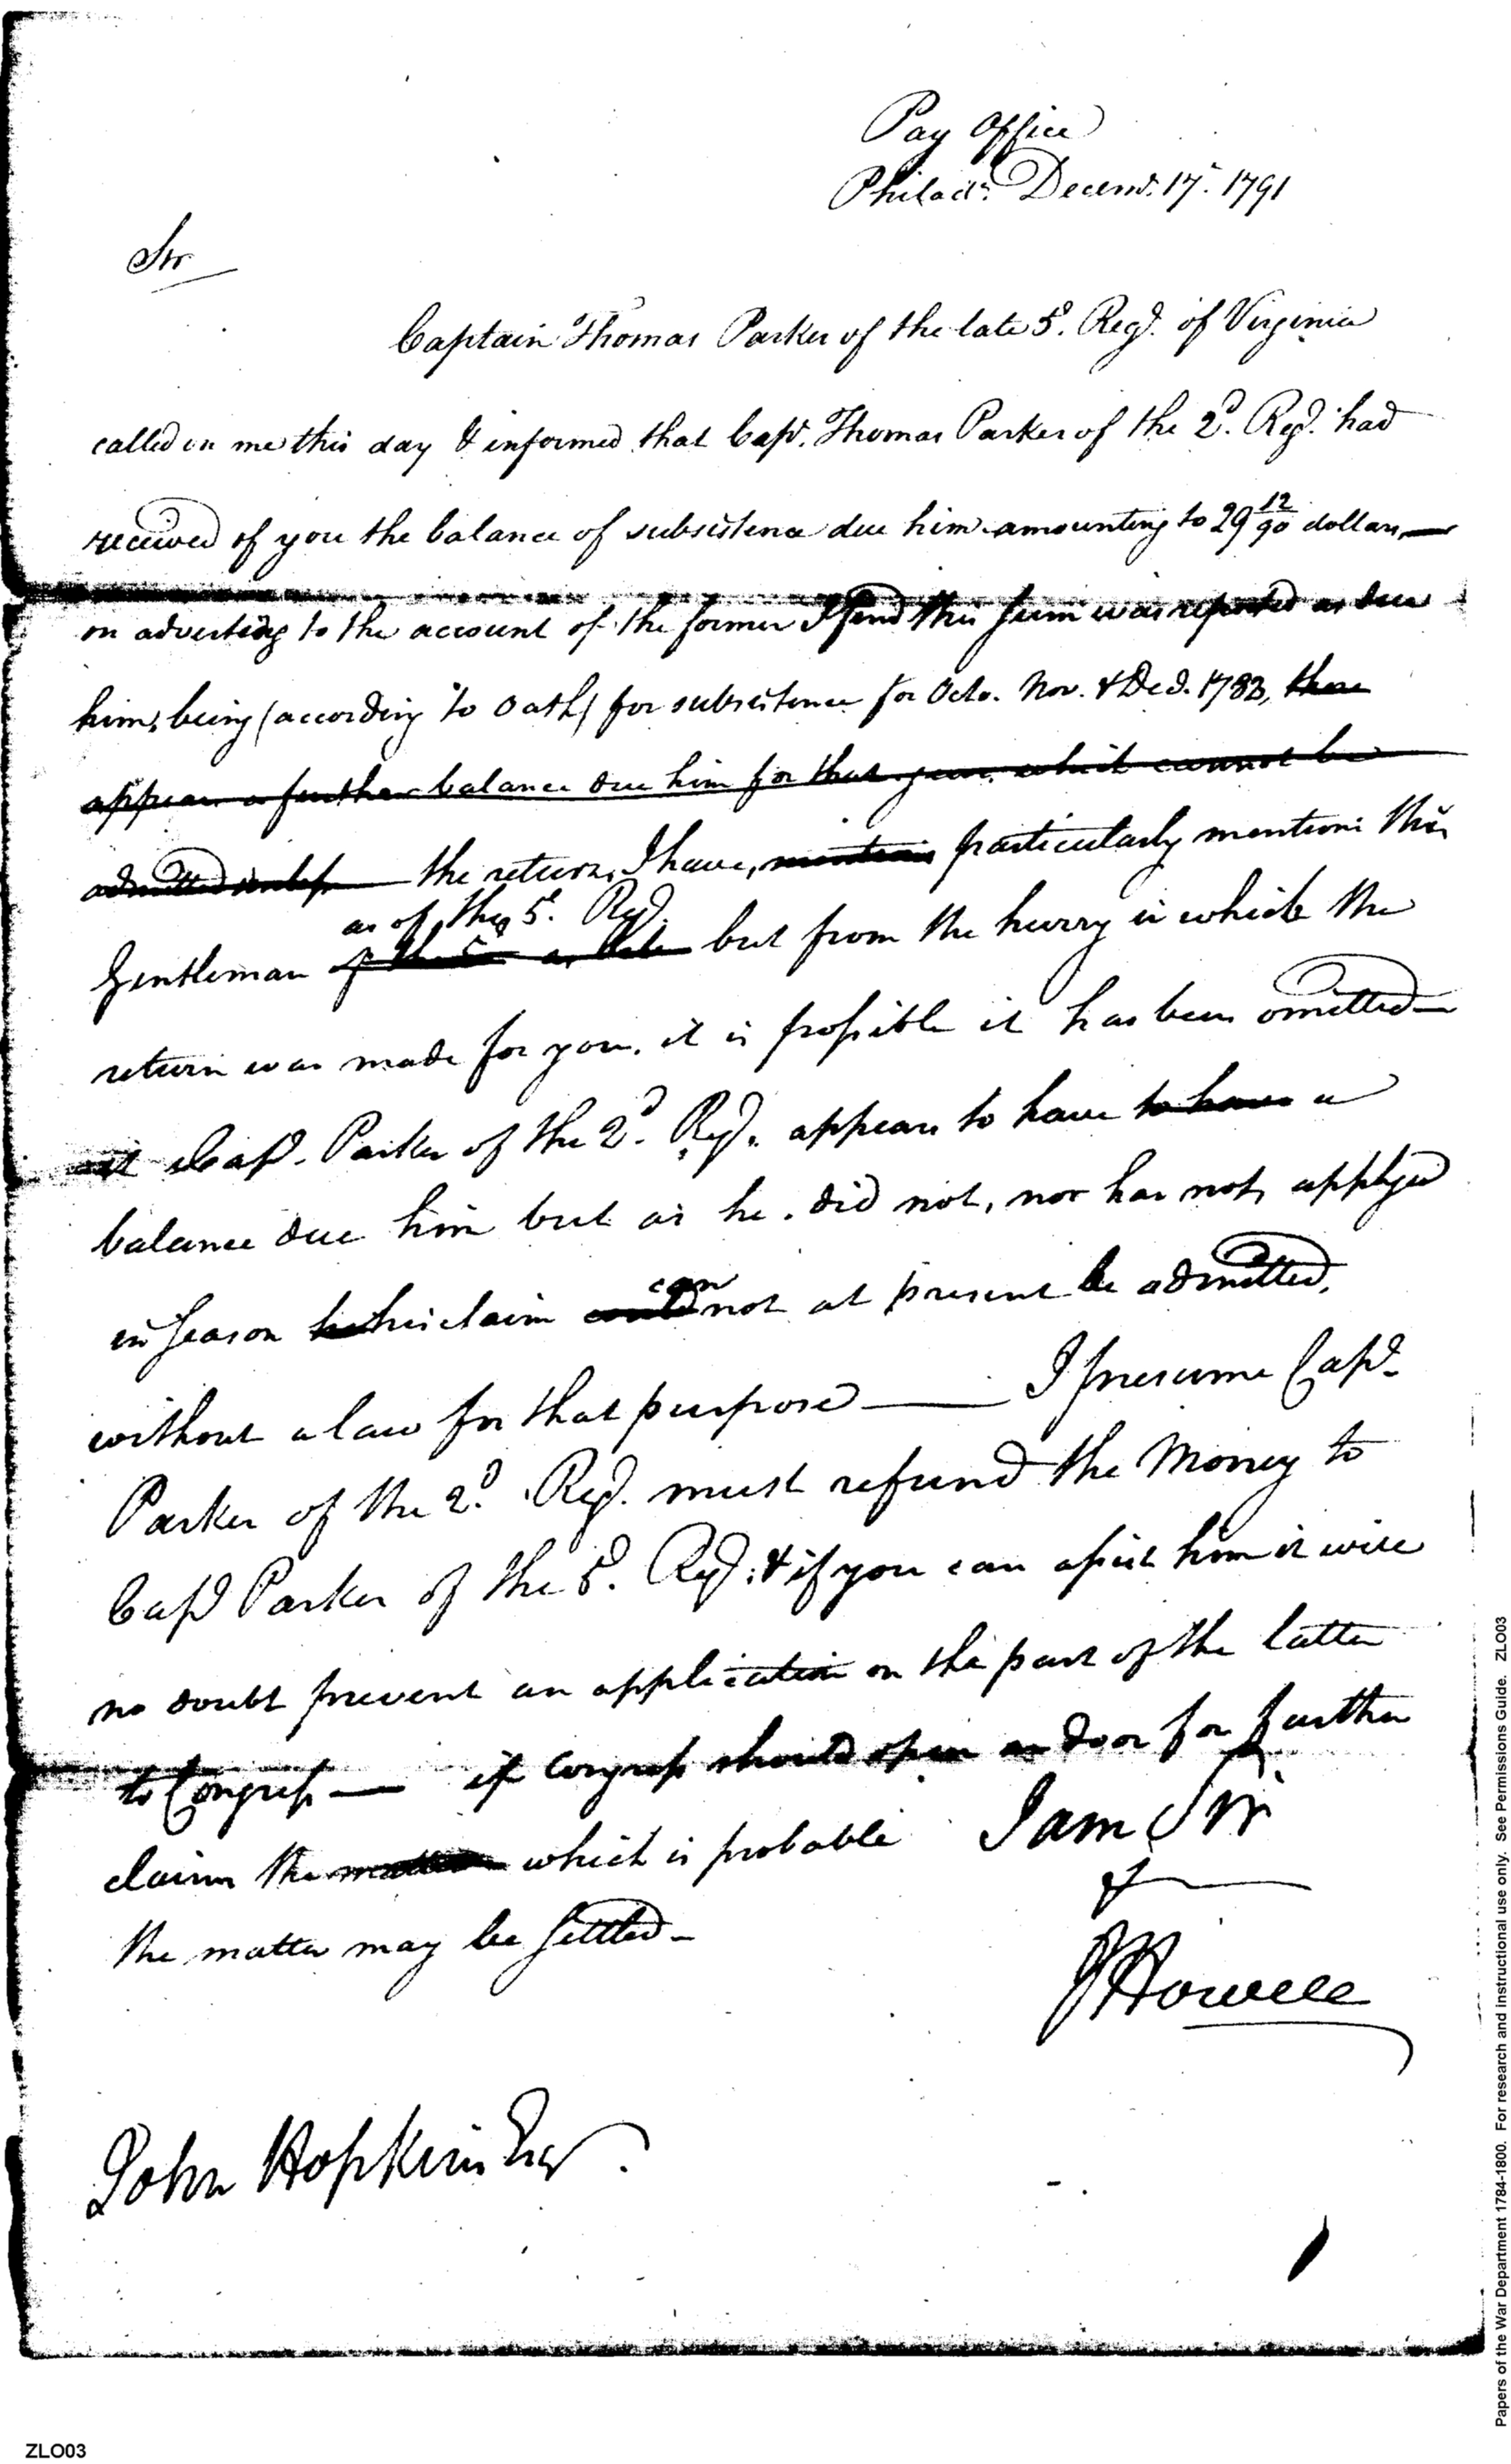 Pay Office
Philada. Decemr. 17. 1791
Sir
Captain Thomas Parker of the late 5th. Regt. of Virginia
called on me this day & informed that Capt. Thomas Parker of the 2d. Regt. had
received of you the balance of subsistence due him amounting to 29 12/90 dollars,—
on adverting to the account of the former I find this sum was reported as due
him, being (according to Oath) for subsistence for Octo. Nov. & Decr. 1782, there
appear a further balance due him for that year, which cannot be
admitted unless the return, I have, mention particularly mentions this
as of the 5th. Regt.
Gentleman of the 5th but from the hurry in which the
return was made for you, it is possible it has been omitted—
Capt. Parker of the 2d. Regt. appears to have to have a
balance due him but as he did not, nor has not, applyed
can
in season his claim could not at present be admitted,
without a law for that purpose — I presume Capt.
Parker of the 2d. Regt. must refund the Money to
Capt Parker of the 5th. Regt: & if you can assist him it will
no doubt prevent an application on the part of the latter
to Congress — if Congress should open a door for further
claims the matter which is probable I am Sir
&
the matter may be settled—
J Howell
John Hopkins Esqr.
ZLO03
Papers of the War Department 1784-1800. For research and instructional use only. See Permissions Guide. ZLO03